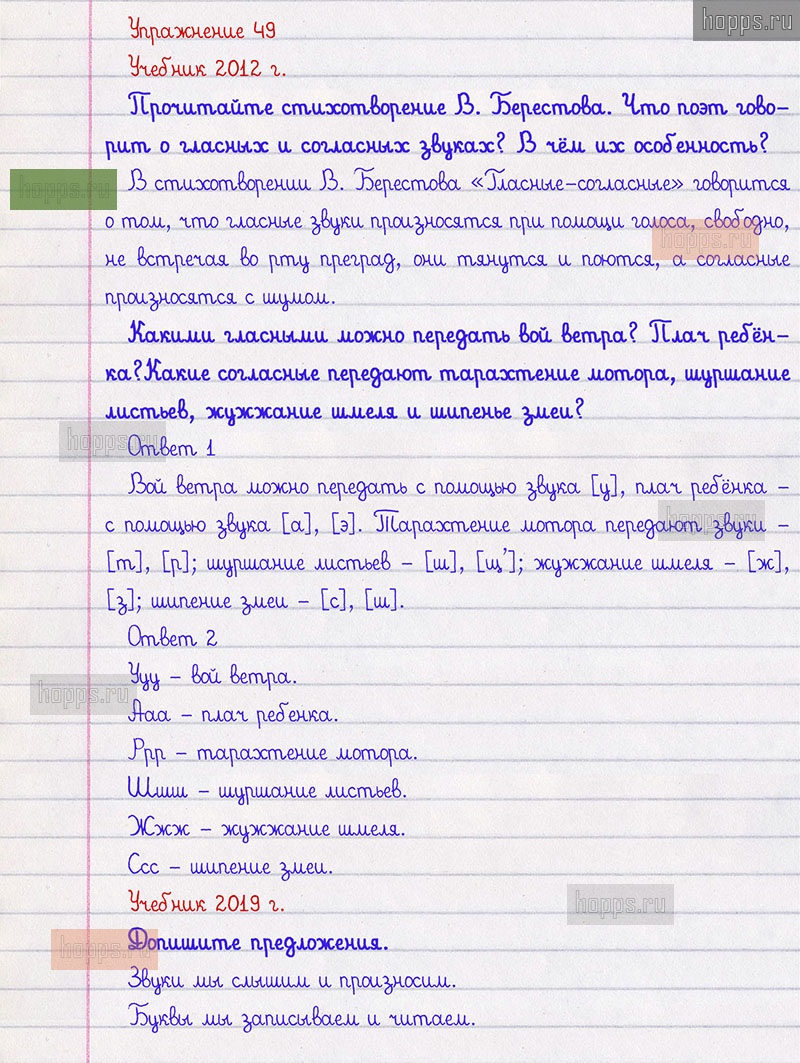 hopps.ru
Упражнение 49
Учебник 2012 г.
Прочитайте стихотворение В. Берестова. Что поэт гово-
рит о гласных и согласных звуках? В чём их особенность?
hopps.ru
В стихотворении В. Берестова «Гласные-согласные» говорится
о том, что гласные звуки произносятся при помощи голоса, свободно,
hopps.ru
не встречая во рту преград, они тянутся и поются, а согласные
произносятся с шумом.
Какими гласными можно передать вой ветра? Плач ребён-
ка?Какие согласные передают тарахтение мотора, шуршание
листьев, жужжание шмеля и шипенье змеи?
hopps.ru
Ответ 1
Вой ветра можно передать с помощью звука [у], плач ребёнка –
с помощью звука [а], [э]. Тарахтение мотора передают звуки –
hopps.ru
[т], [р]; шуршание листьев – [ш], [щ’]; жужжание шмеля – [ж],
[з]; шипение змеи – [с], [ш].
Ответ 2
Ууу – вой ветра.
hopps.ru
Ааа – плач ребенка.
Ррр – тарахтение мотора.
Шшш – шуршание листьев.
Жжж – жужжание шмеля.
Ссс – шипение змеи.
Учебник 2019 г.
hopps.ru
Допишите предложения.
hopps.ru
Звуки мы слышим и произносим.
Буквы мы записываем и читаем.